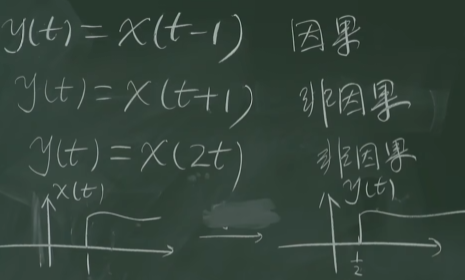 y(t)=x(t-1) 因果
y(t)=x(t+1) 非因果
y(t)=x(2t) 非因果
x(t) y(t)
1 1/2